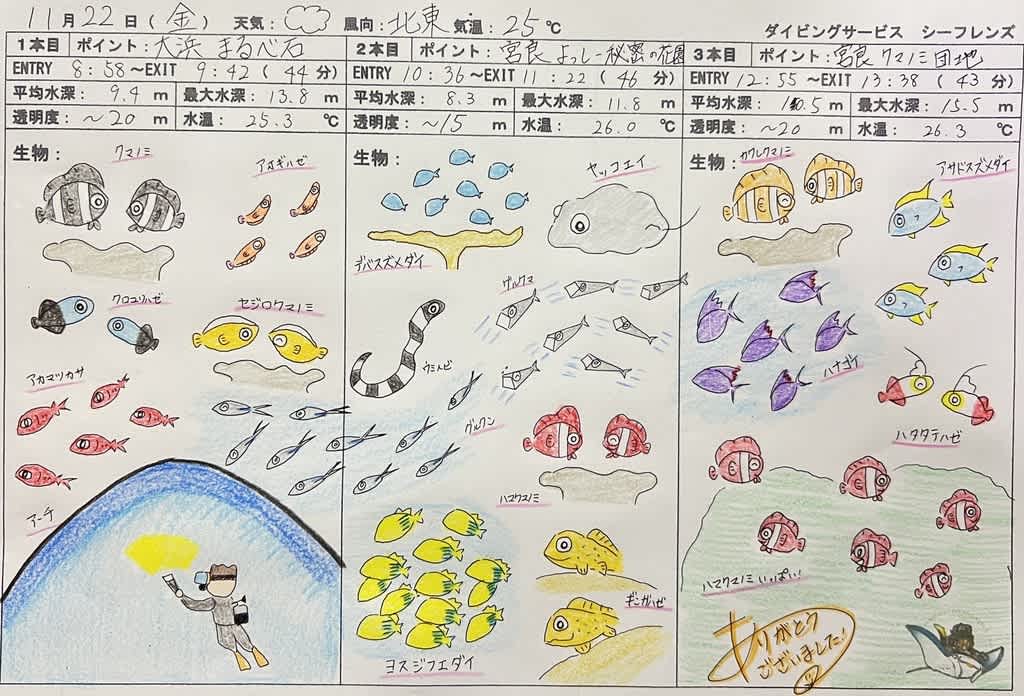 11月22日(金) 天気: 風向:北東 気温:25℃
ダイビングサービス シーフレンズ
1本目 ポイント:大浜 まるべ石
ENTRY 8:58〜EXIT 9:42(44分)
平均水深: 9.4 m 最大水深: 13.8 m
透明度: 〜20 m 水温: 25.3 ℃
生物:
クマノミ
アオギハゼ
クロユリハゼ
セジロクマノミ
アカマツカサ
グルクン
アーチ
2本目 ポイント:宮良 よっしー秘密の花園
ENTRY 10:36〜EXIT 11:22(46分)
平均水深: 8.3 m 最大水深: 11.8 m
透明度: 〜15 m 水温: 26.0 ℃
生物:
ヤッコエイ
デバスズメダイ
グルクマ
ウミヘビ
ハマクマノミ
ギンガハゼ
ヨスジフエダイ
3本目 ポイント:宮良 クマノミ団地
ENTRY 12:55〜EXIT 13:38(43分)
平均水深: 10.5 m 最大水深: 15.5 m
透明度: 〜20 m 水温: 26.3 ℃
生物:
カクレクマノミ
アサドスズメダイ
ハナゴイ
ハタタテハゼ
ハマクマノミいっぱい!
ありがとう
ございました!